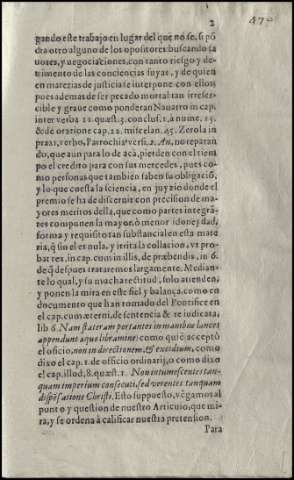 2
470
gando este trabajo en lugar del que no se, si po
dra otro alguno de los opositores buscando fa
uores, y negociaciones, con tanto riesgo y de-
trimento de las conciencias suyas, y de quien
en materias de justicia se interpone con ellos
pues ademas de ser pecado mortal tan irrefer-
cible y graue como ponderan Nauarro in cap.
inter verba 11. quæst. 3. conclus. 1. à nume. 15.
& de oratione cap. 22. miscelan. 45. Zerola in
praxi, verbo, Parrochia versi. 2. An, no reparan
do, que aun para lo de acà, pierden con el tiem
po el credito para con sus mercedes, pues co-
mo personas que tambien saben su obligaciõ,
y lo que cuesta la sciencia, en juyzio donde el
premio se ha de discernir con precision de ma-
yores meritos della, que como partes integrã-
tes componen la mayor, ò menor idoneydad,
forma y requisito tan substancial en esta mate
ria, q̃ sin el es nula, y irrita la collacion, vt pro-
bat tex. in cap. cum in illis, de præbendis, in 6.
de q̃ despues trataremos largamente. Median-
te lo qual, y su mucha rectitud, solo atienden,
y ponen la mira en este fiel y balança, como en
documento que han tomado del Pontifice en
el cap. cum æterni, de sententia & re iudicata,
lib 6. Nam stateram portantes in manibus lances
appendunt æquo libramine: como quiẽ acceptò
el oficio, non in directionem, & excidium, como
dixo el cap. 1. de officio ordinarij, o como dixo
el cap. illod, 8. quæst. 1. Non intumescentes tan-
quam imperium consecuti, sed verentes tanquam
dispẽsatione Christi. Esto supuesto, vẽgamos al
punto y question de nuestro Articulo, que mi-
ra, y se ordena à calificar nuestra pretension.
Para